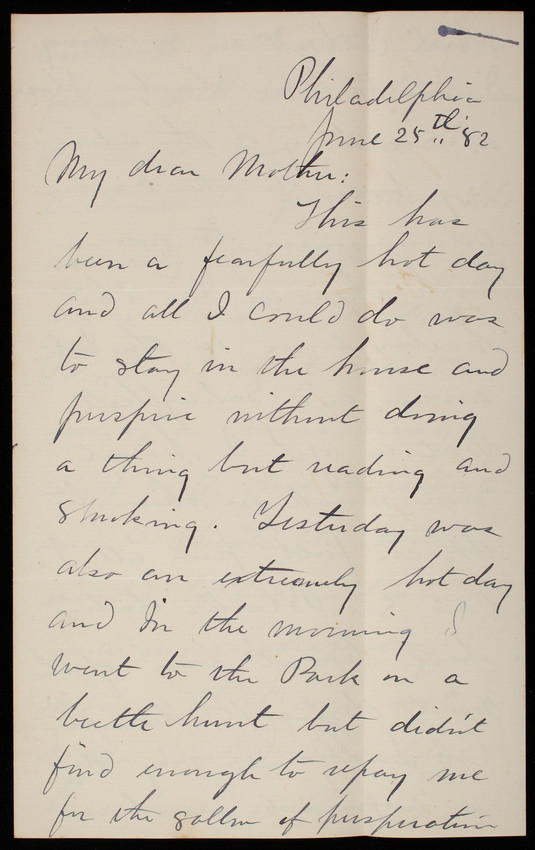 Philadelphia
June 25th. '82
My dear Mother:
This has
been a fearfully hot day
and all I could do was
to stay in the house and
perspire without doing
a thing but reading and
smoking. Yesterday was
also an extremely hot day
and in the morning I
went to the Park on a
beetle hunt but didn't
find enough to repay me
for the gallon of perspiration